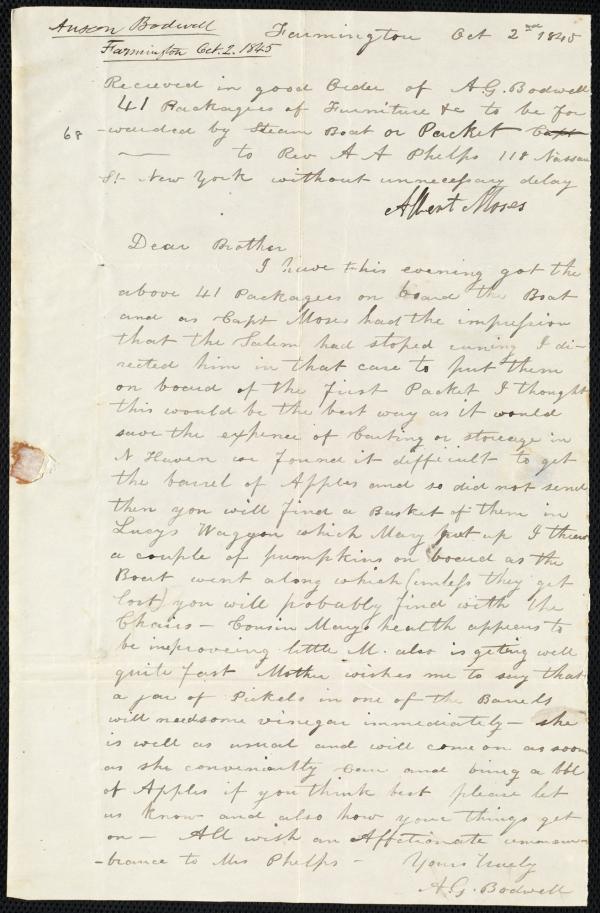 Anson Bodwell
Farmington Oct. 2. 1845
Farmington Oct 2nd 1845
Recieved in good Order of A. G. Bodwell
41 Packages of Furniture &c to be for
68
-warded by Steam Boat or Packet Capt
— to Rev A A Phelps 118 Nassau
St. New York without unnecessary delay
Albert Moses
Dear Brother
I have this evening got the
above 41 Packages on board the Boat
and as Capt Moses had the impression
that the Salem had stoped runing I di-
rected him in that case to put them
on board of the First Packet I thought
this would be the best way as it would
save the expence of Carting or storeage in
N Haven we found it difficult to get
the barrel of Apples and so did not send
them you will find a Basket of them in
Lucys Waggon which Mary put up I threw
a couple of pumpkins on board as the
Boat went along which (unless they get
lost) you will probably find with the
Chairs — Cousin Marys health appears to
be improveing little M. also is geting well
quite fast Mother wishes me to say that
a jar of Pickels in one of the Barrels
will need some vinegar immediately — she
is well as usual and will come on as soon
as she conveniantly can and bring a bbl
of Apples if you think best please let
us know and also how your things get
on — All wish an Affectionate remem-
-brance to Mrs Phelps — Yours Truely
A. G. Bodwell